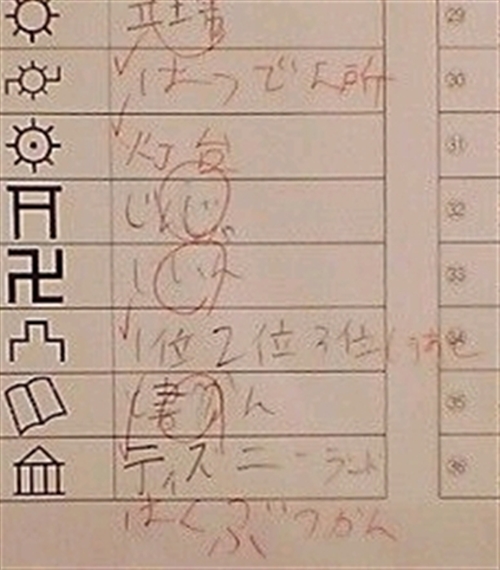 ㉙
はつでん所 ㉚
灯台 ㉛
じんじゃ ㉜
じいん ㉝
1位2位3位 ㉞
書かん ㉟
ディズニーランド ㊱
はくぶつかん